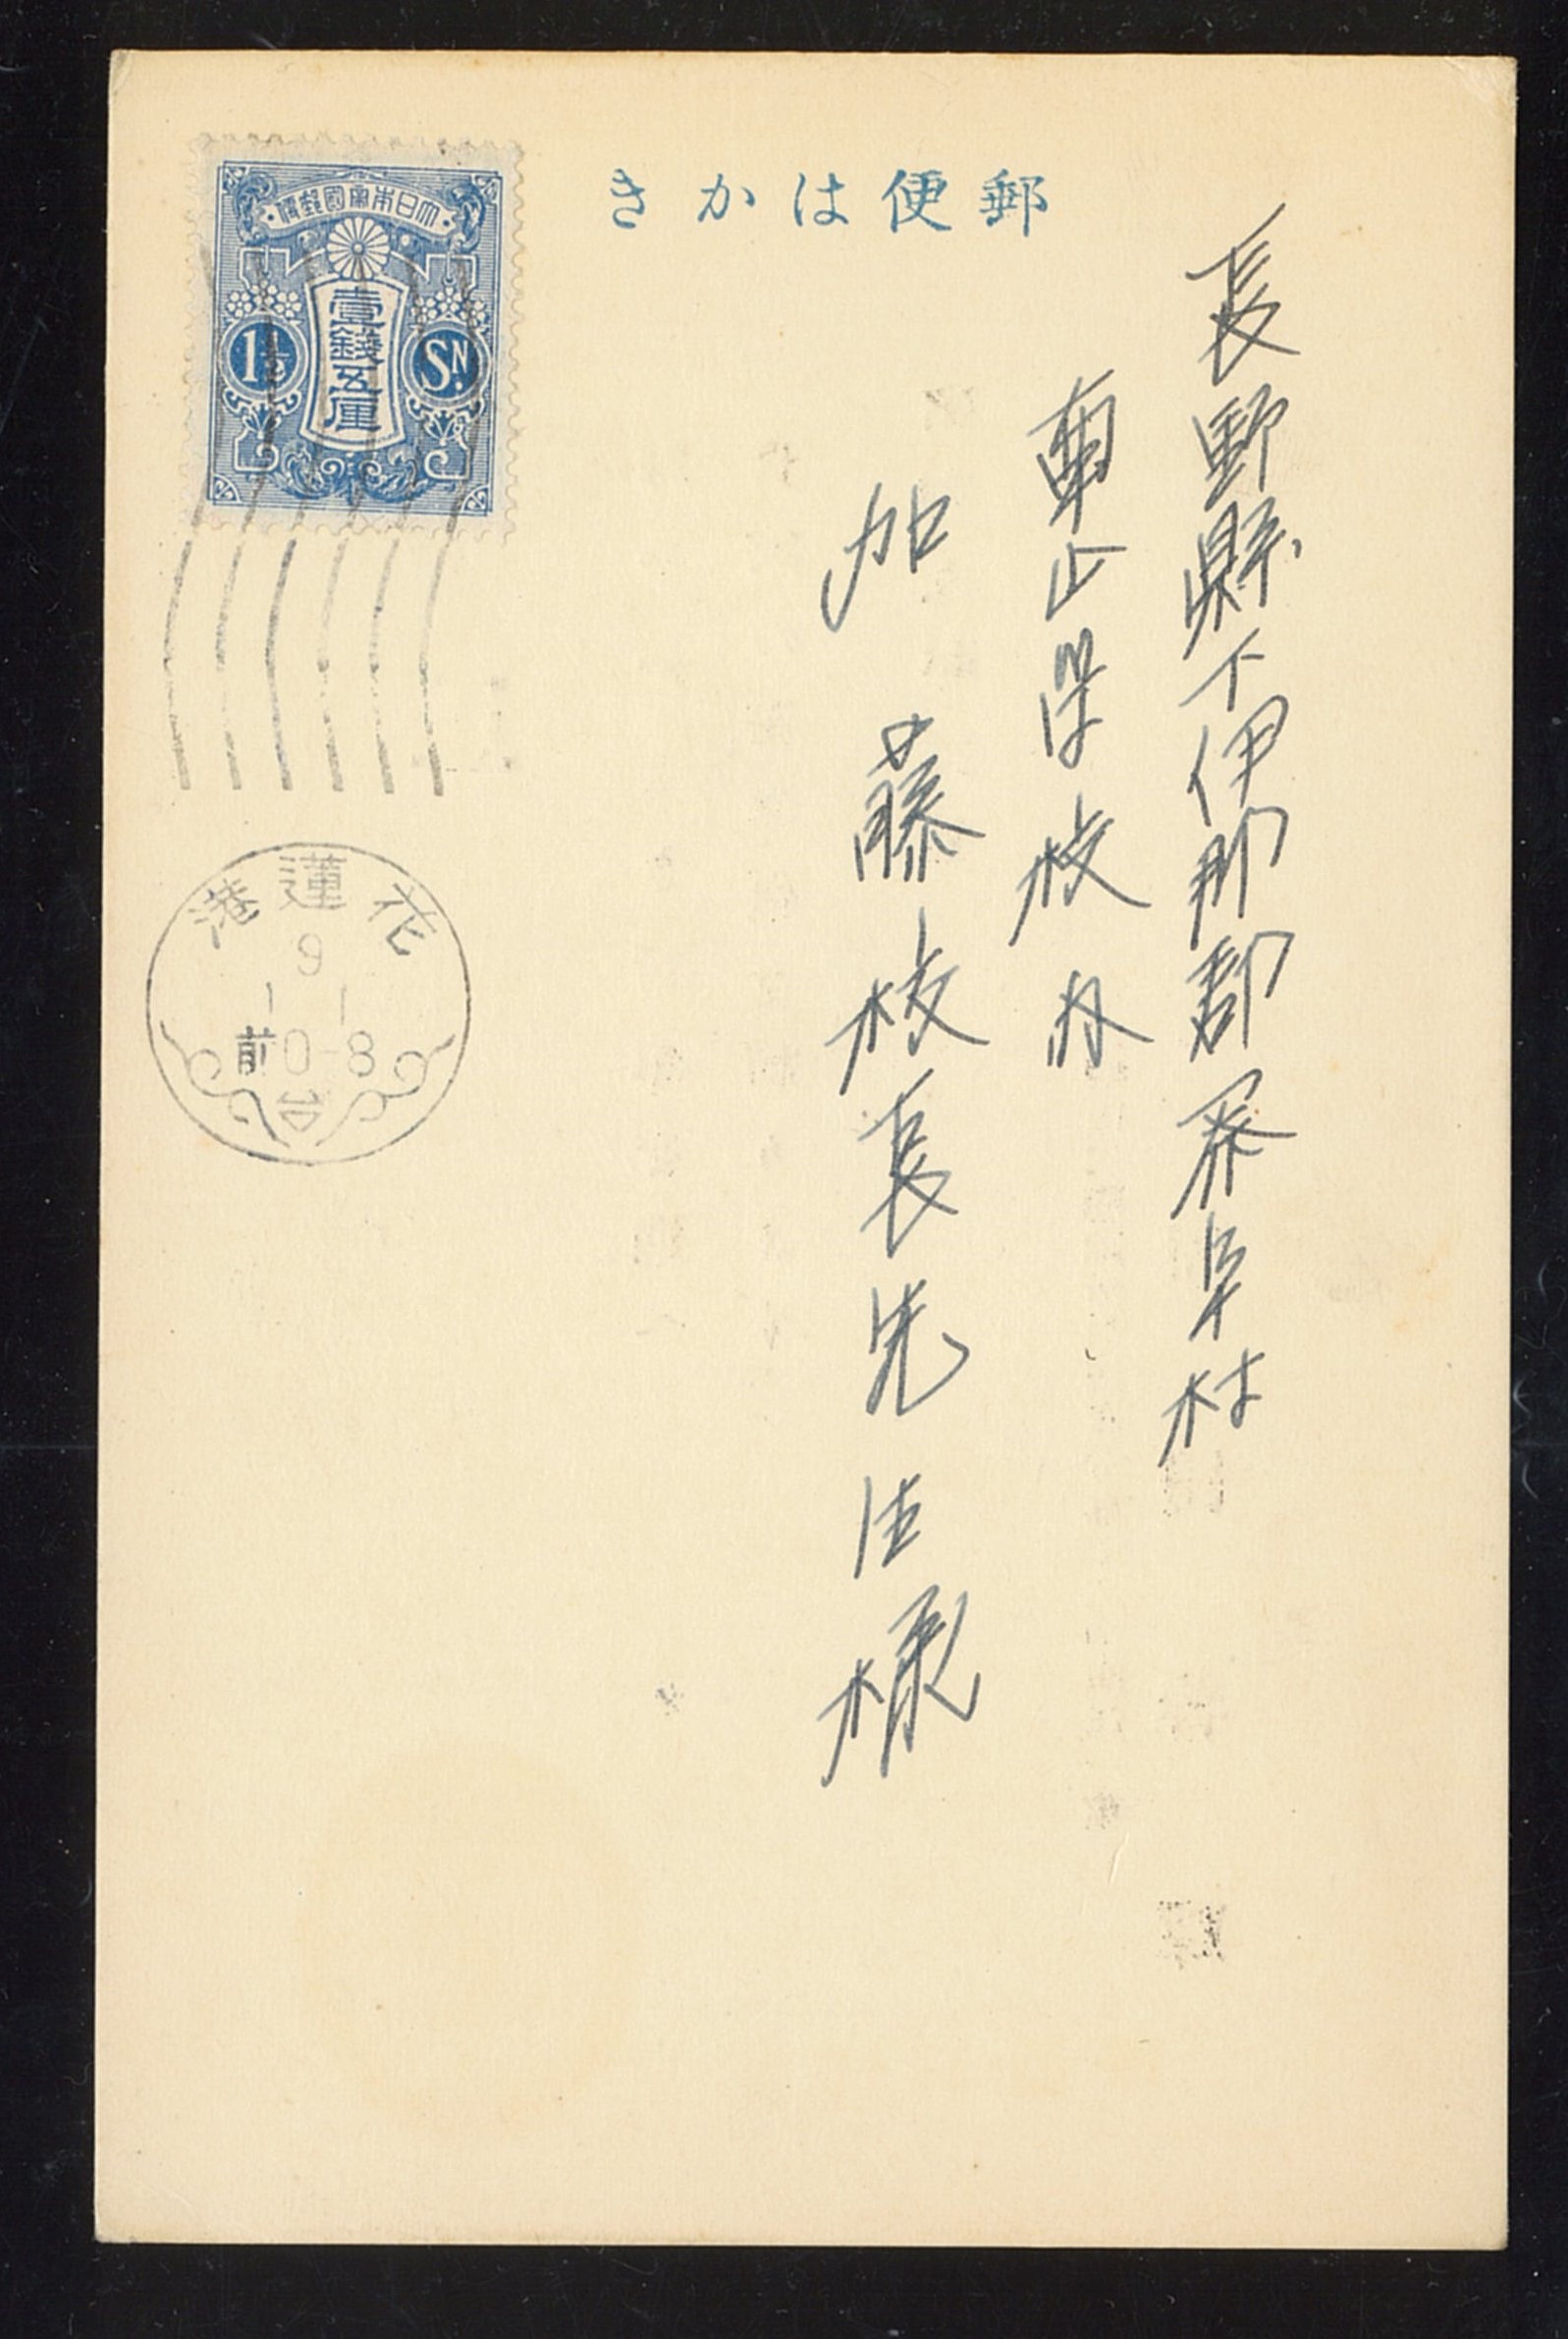 郵便はかき
大日本帝國郵便
壹錢五厘
1½ SN.
長野縣下伊那郡泰阜村
学校内
加藤校長先生様
花蓮港
9
1 1
前0-8
台